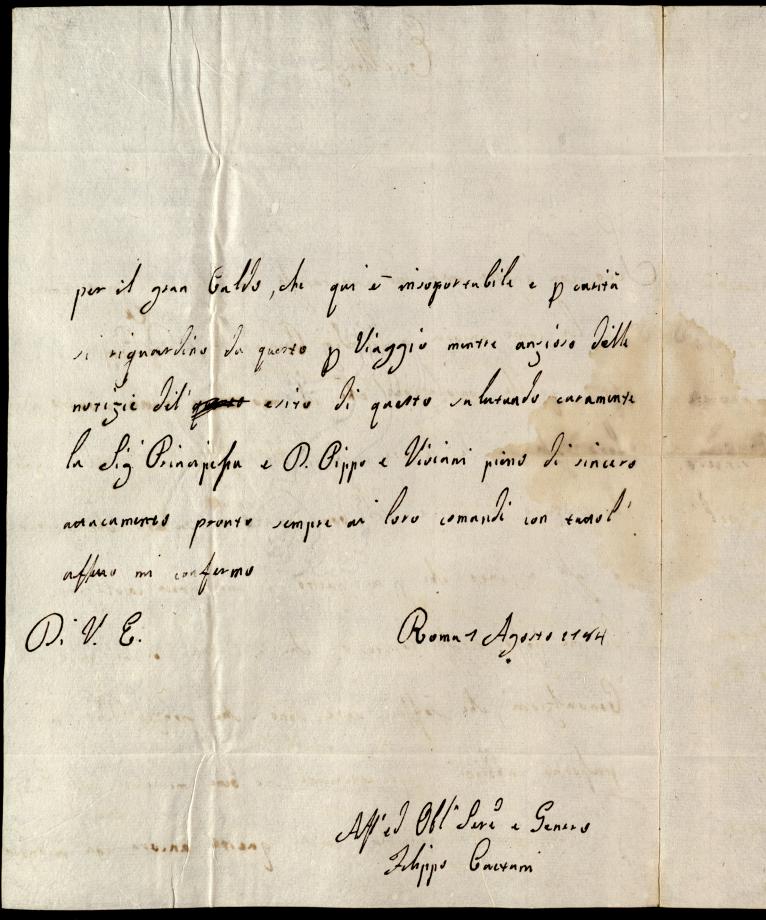 per il gran Caldo, che qui è insoportabile e p carità
si riguardino da questo p Viaggio mentre anzioso delle
notizie dell' esito di questo salutando caramente
la Sig Principessa e D. Pippo e Viviani pieno di sincero
attacamento pronto sempre ai loro comandi con tutto l'
affetto mi confermo
Di V. E.
Roma 1 Agosto
Aff ed Obl Serv e Genero
Filippo Caetani